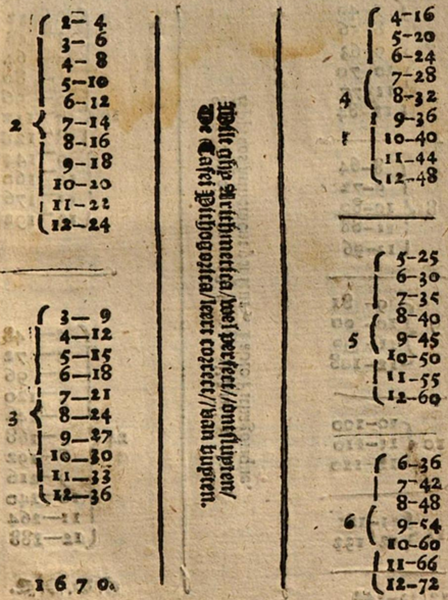 2— 4
3— 6
4— 8
5—10
6—12
2 { 7—14
8—16
9—18
10—20
11—22
12—24
3— 9
4—12
5—15
6—18
7—21
3 { 8—24
9—27
10—30
11—33
12—36
1670.
Wilt ghy Arithmetica/wel perfect//ontsluyten/
De Tafel Pithogorica/leert correct//van buyten.
4—16
5—20
6—24
7—28
4 { 8—32
9—36
10—40
11—44
12—48
5—25
6—30
7—35
8—40
5 { 9—45
10—50
11—55
12—60
6—36
7—42
8—48
6 { 9—54
10—60
11—66
12—72